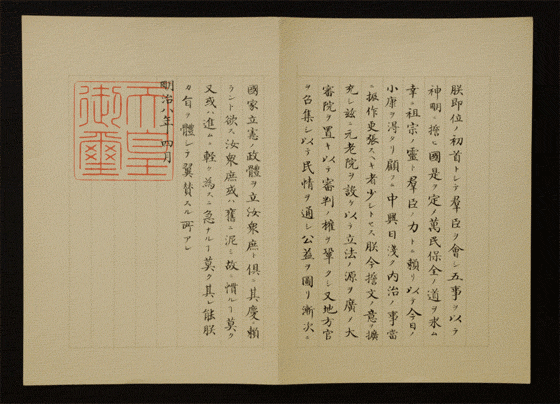 朕即位ノ初首トシテ群臣ヲ會シ五事ヲ以テ
神明ニ誓ヒ國是ヲ定メ萬民保全ノ道ヲ求ム
幸ニ祖宗ノ靈ト群臣ノ力トニ頼リ以テ今日ノ
小康ヲ得タリ顧ニ中興日淺ク内治ノ事當
ニ振作更張スヘキ者少シトセス朕今誓文ノ意ヲ擴
充シ茲ニ元老院ヲ設ケ以テ立法ノ源ヲ廣メ大
審院ヲ置キ以テ審判ノ權ヲ鞏クシ又地方官
ヲ召集シ以テ民情ヲ通シ公益ヲ圖リ漸次ニ
國家立憲ノ政體ヲ立汝衆庶ト倶ニ其慶ニ頼
ラント欲ス汝衆庶或ハ舊ニ泥ミ故ニ慣ルヽヿ莫ク
又或ハ進ムニ輕ク為スニ急ナルヿ莫ク其レ能朕
カ旨ヲ體シテ翼賛スル所アレ
明治八年四月
天皇御璽